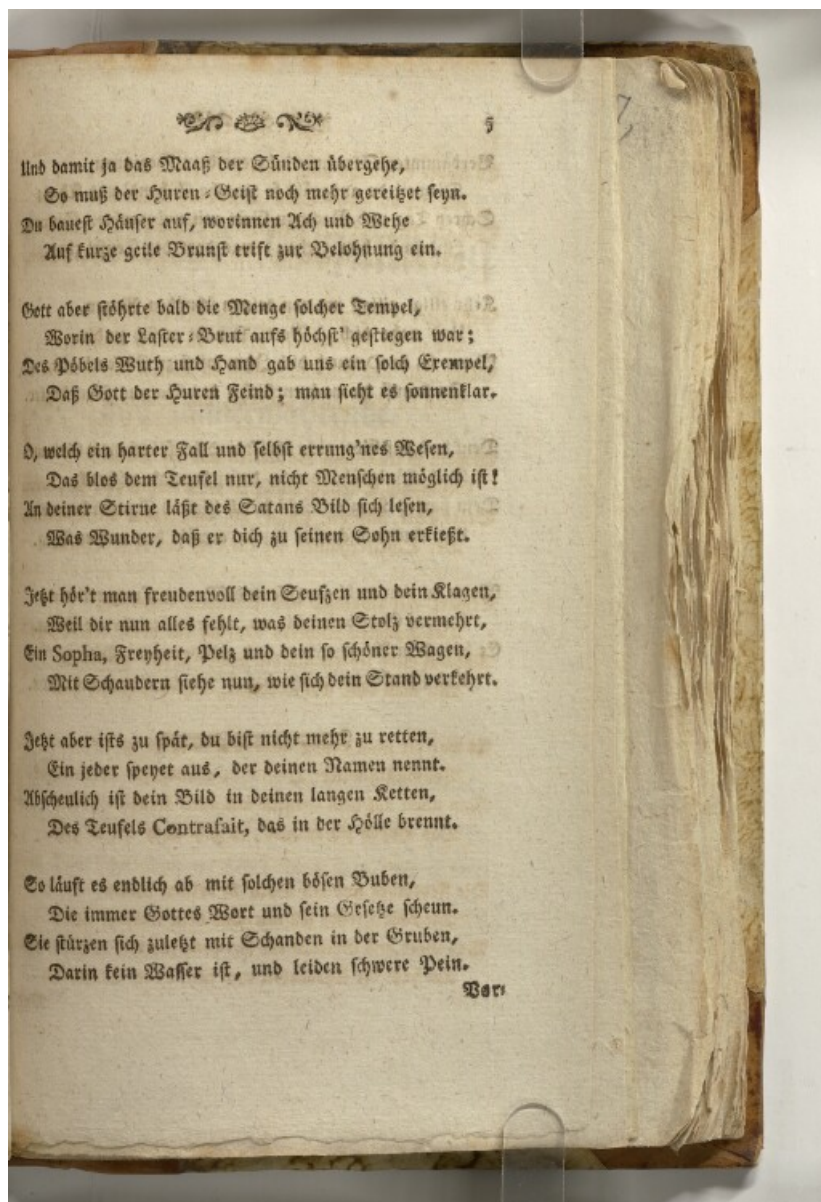 5
Und damit ja das Maaß der Sünden übergehe,
So muß der Huren-Geist noch mehr gereitzet seyn.
Du bauest Häuser auf, worinnen Ach und Wehe
Auf kurze geile Brunst trift zur Belohnung ein.
Gott aber stöhrte bald die Menge solcher Tempel,
Worin der Laster-Brut aufs höchst' gestiegen war;
Des Pöbels Wuth und Hand gab uns ein solch Exempel,
Daß Gott der Huren Feind; man sieht es sonnenklar.
O, welch ein harter Fall und selbst errung'nes Wesen,
Das blos dem Teufel nur, nicht Menschen möglich ist!
An deiner Stirne läßt des Satans Bild sich lesen,
Was Wunder, daß er dich zu seinen Sohn erkießt.
Jetzt hör't man freudenvoll dein Seufzen und dein Klagen,
Weil dir nun alles fehlt, was deinen Stolz vermehrt,
Ein Sopha, Freyheit, Pelz und dein so schöner Wagen,
Mit Schaudern siehe nun, wie sich dein Stand verkehrt.
Jetzt aber ists zu spät, du bist nicht mehr zu retten,
Ein jeder speyet aus, der deinen Namen nennt.
Abscheulich ist dein Bild in deinen langen Ketten,
Des Teufels Contrafait, das in der Hölle brennt.
So läuft es endlich ab mit solchen bösen Buben,
Die immer Gottes Wort und sein Gesetze scheun.
Sie stürzen sich zuletzt mit Schanden in der Gruben,
Darin kein Wasser ist, und leiden schwere Pein.
Ver-